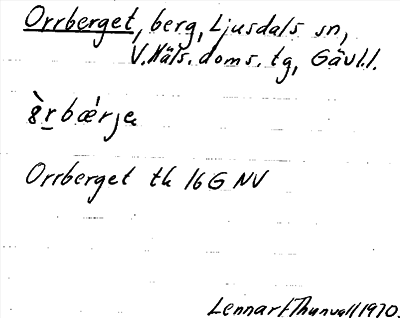 Orrberget, berg, Ljusdals sn,
V. Häls. doms. tg, Gävl.l.
Orrberget tk 16G NV
Lennart Thunvall 1970.